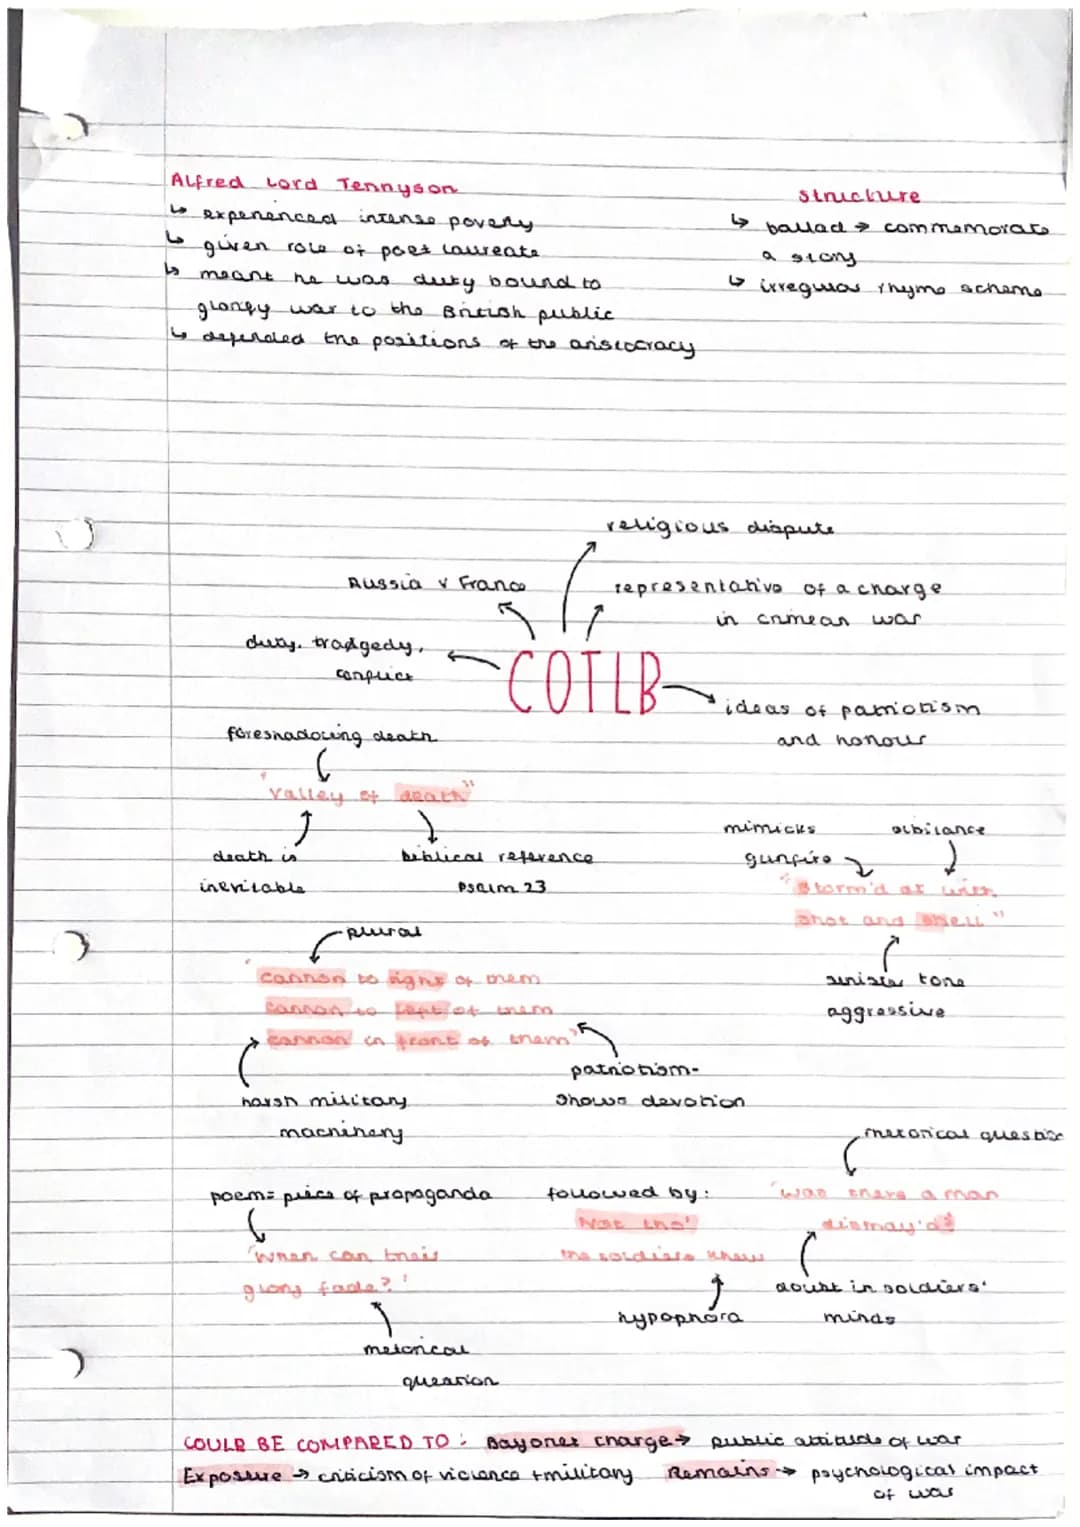 Alfred Lord Tennyson
↳ experienced intense poverty
↳ given role of poet laureate
↳ meant he was duty bound to
glorify war to the British public
↳ defended the positions of the aristocracy
structure
↳ ballad → commemorate
a story
↳ irregular rhyme scheme
religious dispute
Russia v France
representative of a charge
in crimean war
duty, tradgedy,
conflict
COTLB
ideas of patriotism
and honour
foreshadowing death
"valley of death"
death is
inevitable
biblical reference
psalm 23
mimicks
gunfire
sibilance
"Storm'd at with
shot and shell"
sinister tone
aggressive
plural
'cannon to right of them
cannon to left of them
cannon in front of them'
harsh military
machinery
patriotism-
shows devotion
poem = piece of propaganda
'When can their
glory fade?'
rhetorical
question
followed by:
'Not tho'
the soldiers knew
hypophora
rhetorical question
'was there a man
dismay'd?
doubt in soldiers'
minds
COULD BE COMPARED TO: Bayonet charge → public attitude of war
Exposure → criticism of violence + military Remains → psychological impact
of war